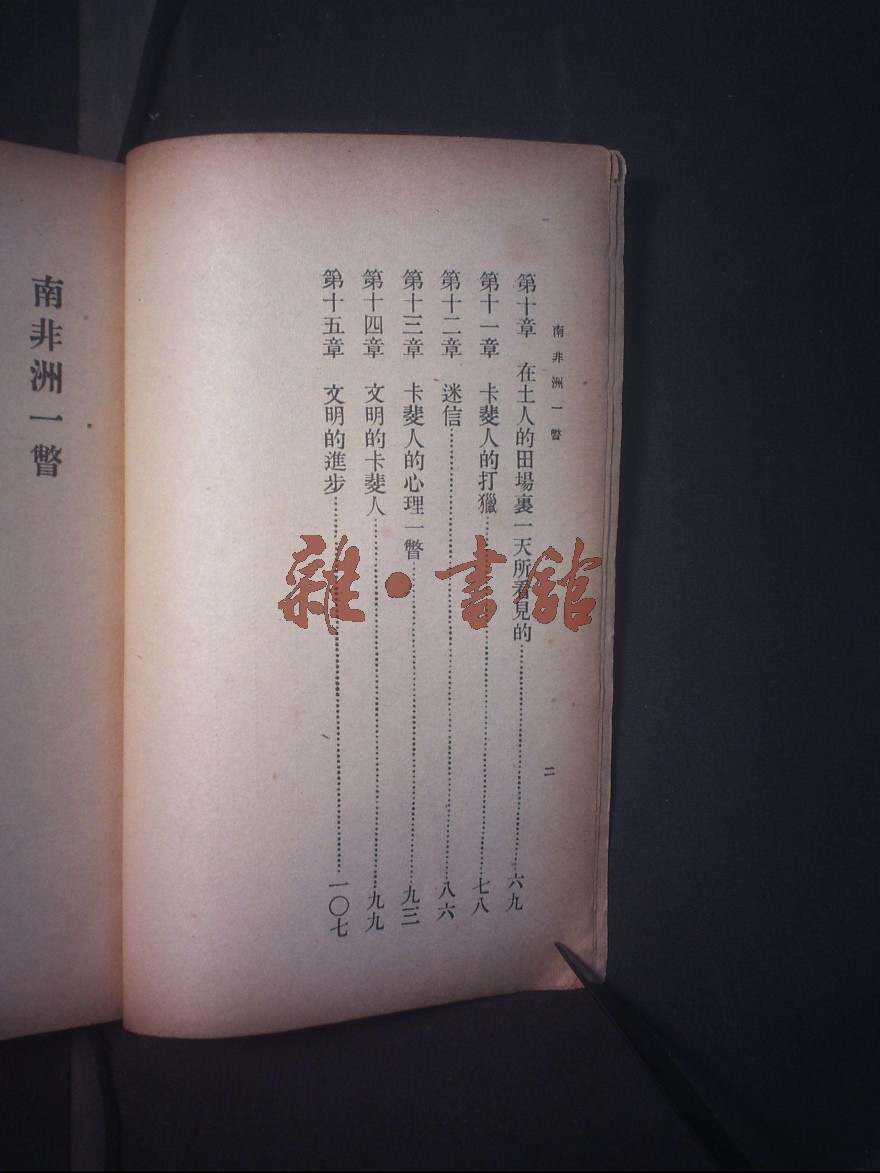 南非洲一瞥
二
第十章 在土人的田場裏一天所看見的……六九
第十一章 卡斐人的打獵……七八
第十二章 迷信……八六
第十三章 卡斐人的心理一瞥……九三
第十四章 文明的卡斐人……九九
第十五章 文明的進步……一〇七
南非洲一瞥
雜·書館